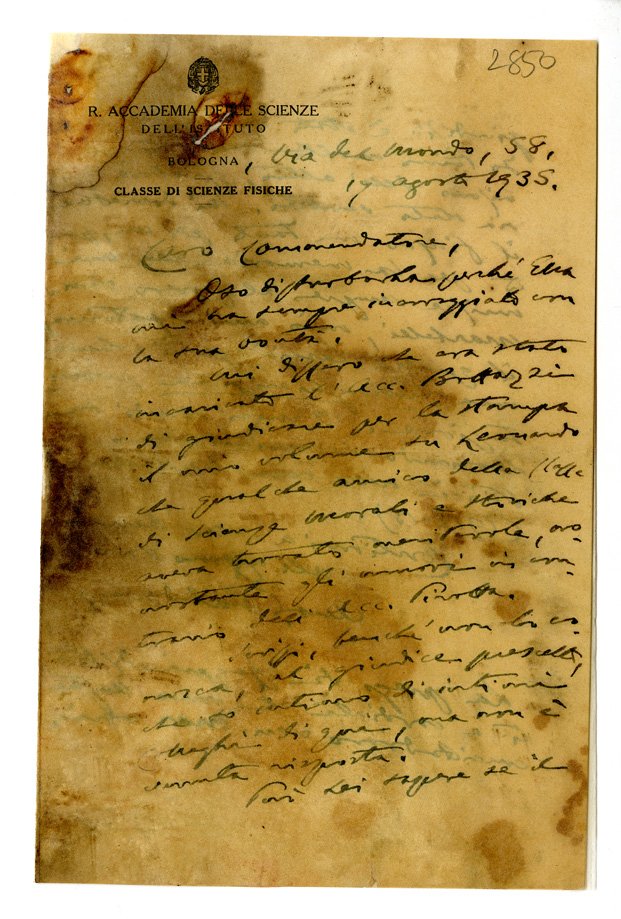 2850
R. ACCADEMIA DELLE SCIENZE
DELL'ISTITUTO
BOLOGNA
CLASSE DI SCIENZE FISICHE
, Via del Mondo, 58,
, 7 agosto 1935.
Caro Commendatore,
Oso disturbarla perché Ella
mi ha sempre incoraggiato con
la sua bontà.
Mi dissero che era stato
incaricato l'Acc. Bottazzi
di giudicare per la stampa
il mio volume su Leonardo
che qualche amico della Classe
di Scienze Morali e Storiche
aveva trovato meritevole, no-
nostante gli umori in con-
trario dell'Acc. Pirotta.
Scrissi, benché non lo co-
nosca, al giudice prescelto,
che so intimo di intimi
di qui, ma non è
venuta risposta.
Può Lei sapere se il